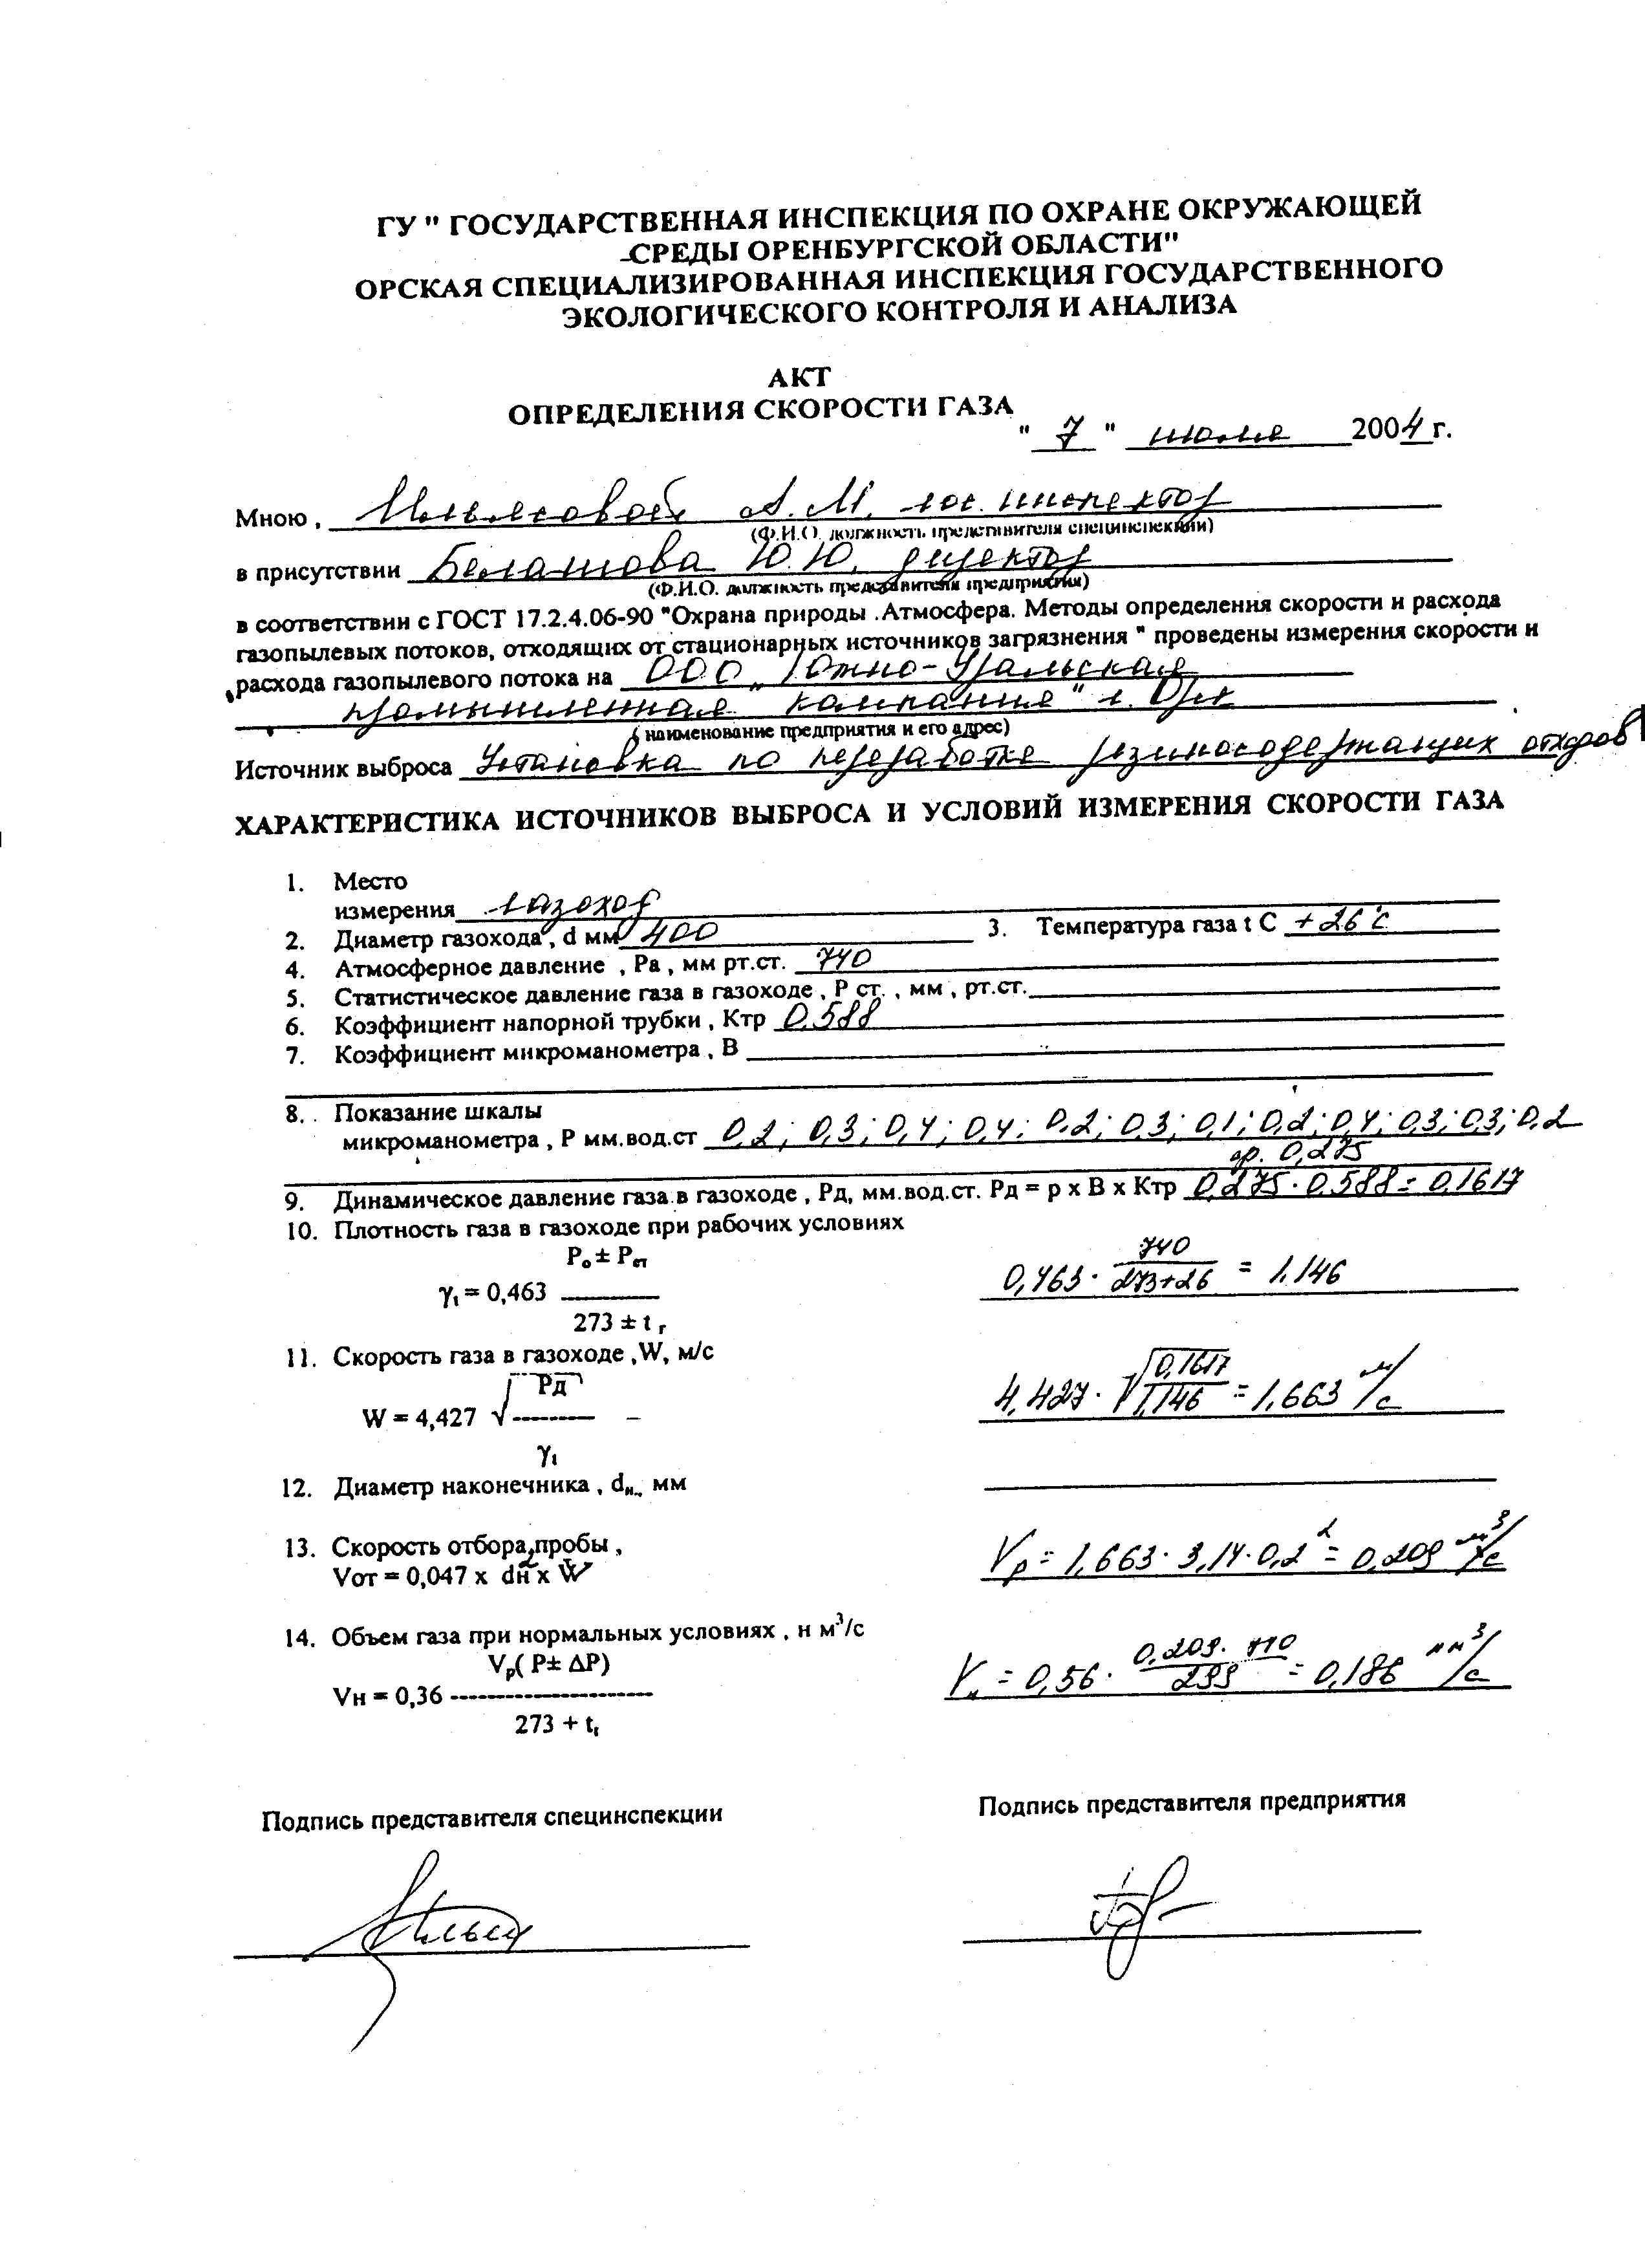 ГУ " ГОСУДАРСТВЕННАЯ ИНСПЕКЦИЯ ПО ОХРАНЕ ОКРУЖАЮЩЕЙ
СРЕДЫ ОРЕНБУРГСКОЙ ОБЛАСТИ"
ОРСКАЯ СПЕЦИАЛИЗИРОВАННАЯ ИНСПЕКЦИЯ ГОСУДАРСТВЕННОГО
ЭКОЛОГИЧЕСКОГО КОНТРОЛЯ И АНАЛИЗА
АКТ
ОПРЕДЕЛЕНИЯ СКОРОСТИ ГАЗА
" 7 " июля 2004 г.
Мною , Ильясовой А.М. гос. инспектор
(Ф.И.О. должность представителя специнспекции)
в присутствии Белашова Ю.Ю. директор
(Ф.И.О. должность представителя предприятия)
в соответствии с ГОСТ 17.2.4.06-90 "Охрана природы .Атмосфера. Методы определения скорости и расхода
газопылевых потоков, отходящих от стационарных источников загрязнения " проведены измерения скорости и
расхода газопылевого потока на ООО „Южно-Уральская
промышленная компания" г. Орск
( наименование предприятия и его адрес)
Источник выброса Установка по переработке резиносодержащих отходов
ХАРАКТЕРИСТИКА ИСТОЧНИКОВ ВЫБРОСА И УСЛОВИЙ ИЗМЕРЕНИЯ СКОРОСТИ ГАЗА
1. Место
измерения газоход
2. Диаметр газохода , d мм 400 3. Температура газа t С +26°с
4. Атмосферное давление , Ра , мм рт.ст. 740
5. Статистическое давление газа в газоходе , Р ст. , мм , рт.ст.
6. Коэффициент напорной трубки , Ктр 0.588
7. Коэффициент микроманометра , В
8. Показание шкалы
микроманометра , Р мм.вод.ст 0,2; 0,3; 0,4; 0,4; 0,2; 0,3; 0,1; 0,2; 0,4; 0,3; 0,3; 0,2
ср. 0,275
9. Динамическое давление газа в газоходе , Рд, мм.вод.ст. Рд = р х В х Ктр 0,275 · 0,588 = 0,1617
10. Плотность газа в газоходе при рабочих условиях
Ро ± Рст 740
γ₁ = 0,463 ---------- 0,463 · 273+26 = 1.146
273 ± t г
11. Скорость газа в газоходе ,W, м/с
Рд 0,1617
W = 4,427 √--------- 4,427 · √1,146 = 1,663 м/с
γ₁
12. Диаметр наконечника , dн., мм
13. Скорость отбора пробы ,
Vот = 0,047 х dн² х W Vр = 1,663 · 3,14 · 0,2² = 0,209 м³/с
14. Объем газа при нормальных условиях , н м³/с
Vр( Р± ΔР) 0,209 · 740
Vн = 0,36 ---------------------- Vн = 0,56 · 299 = 0,186 нм³/с
273 + t₁
Подпись представителя специнспекции Подпись представителя предприятия